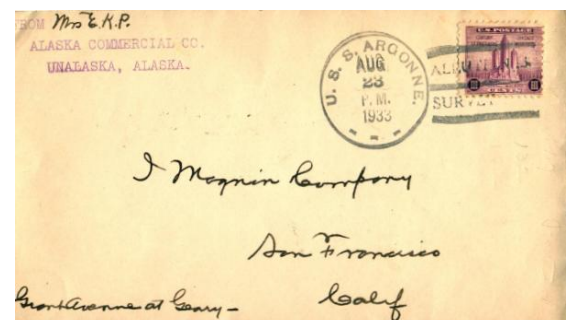 FROM Mrs E.K.P.
ALASKA COMMERCIAL CO.
UNALASKA, ALASKA.
U. S. S. ARGONNE.
AUG
23
P. M.
1933
SURVEY
U.S. POSTAGE
CENTS
I Magnin Company
San Francisco
Calif
Grant Avenue at Geary -